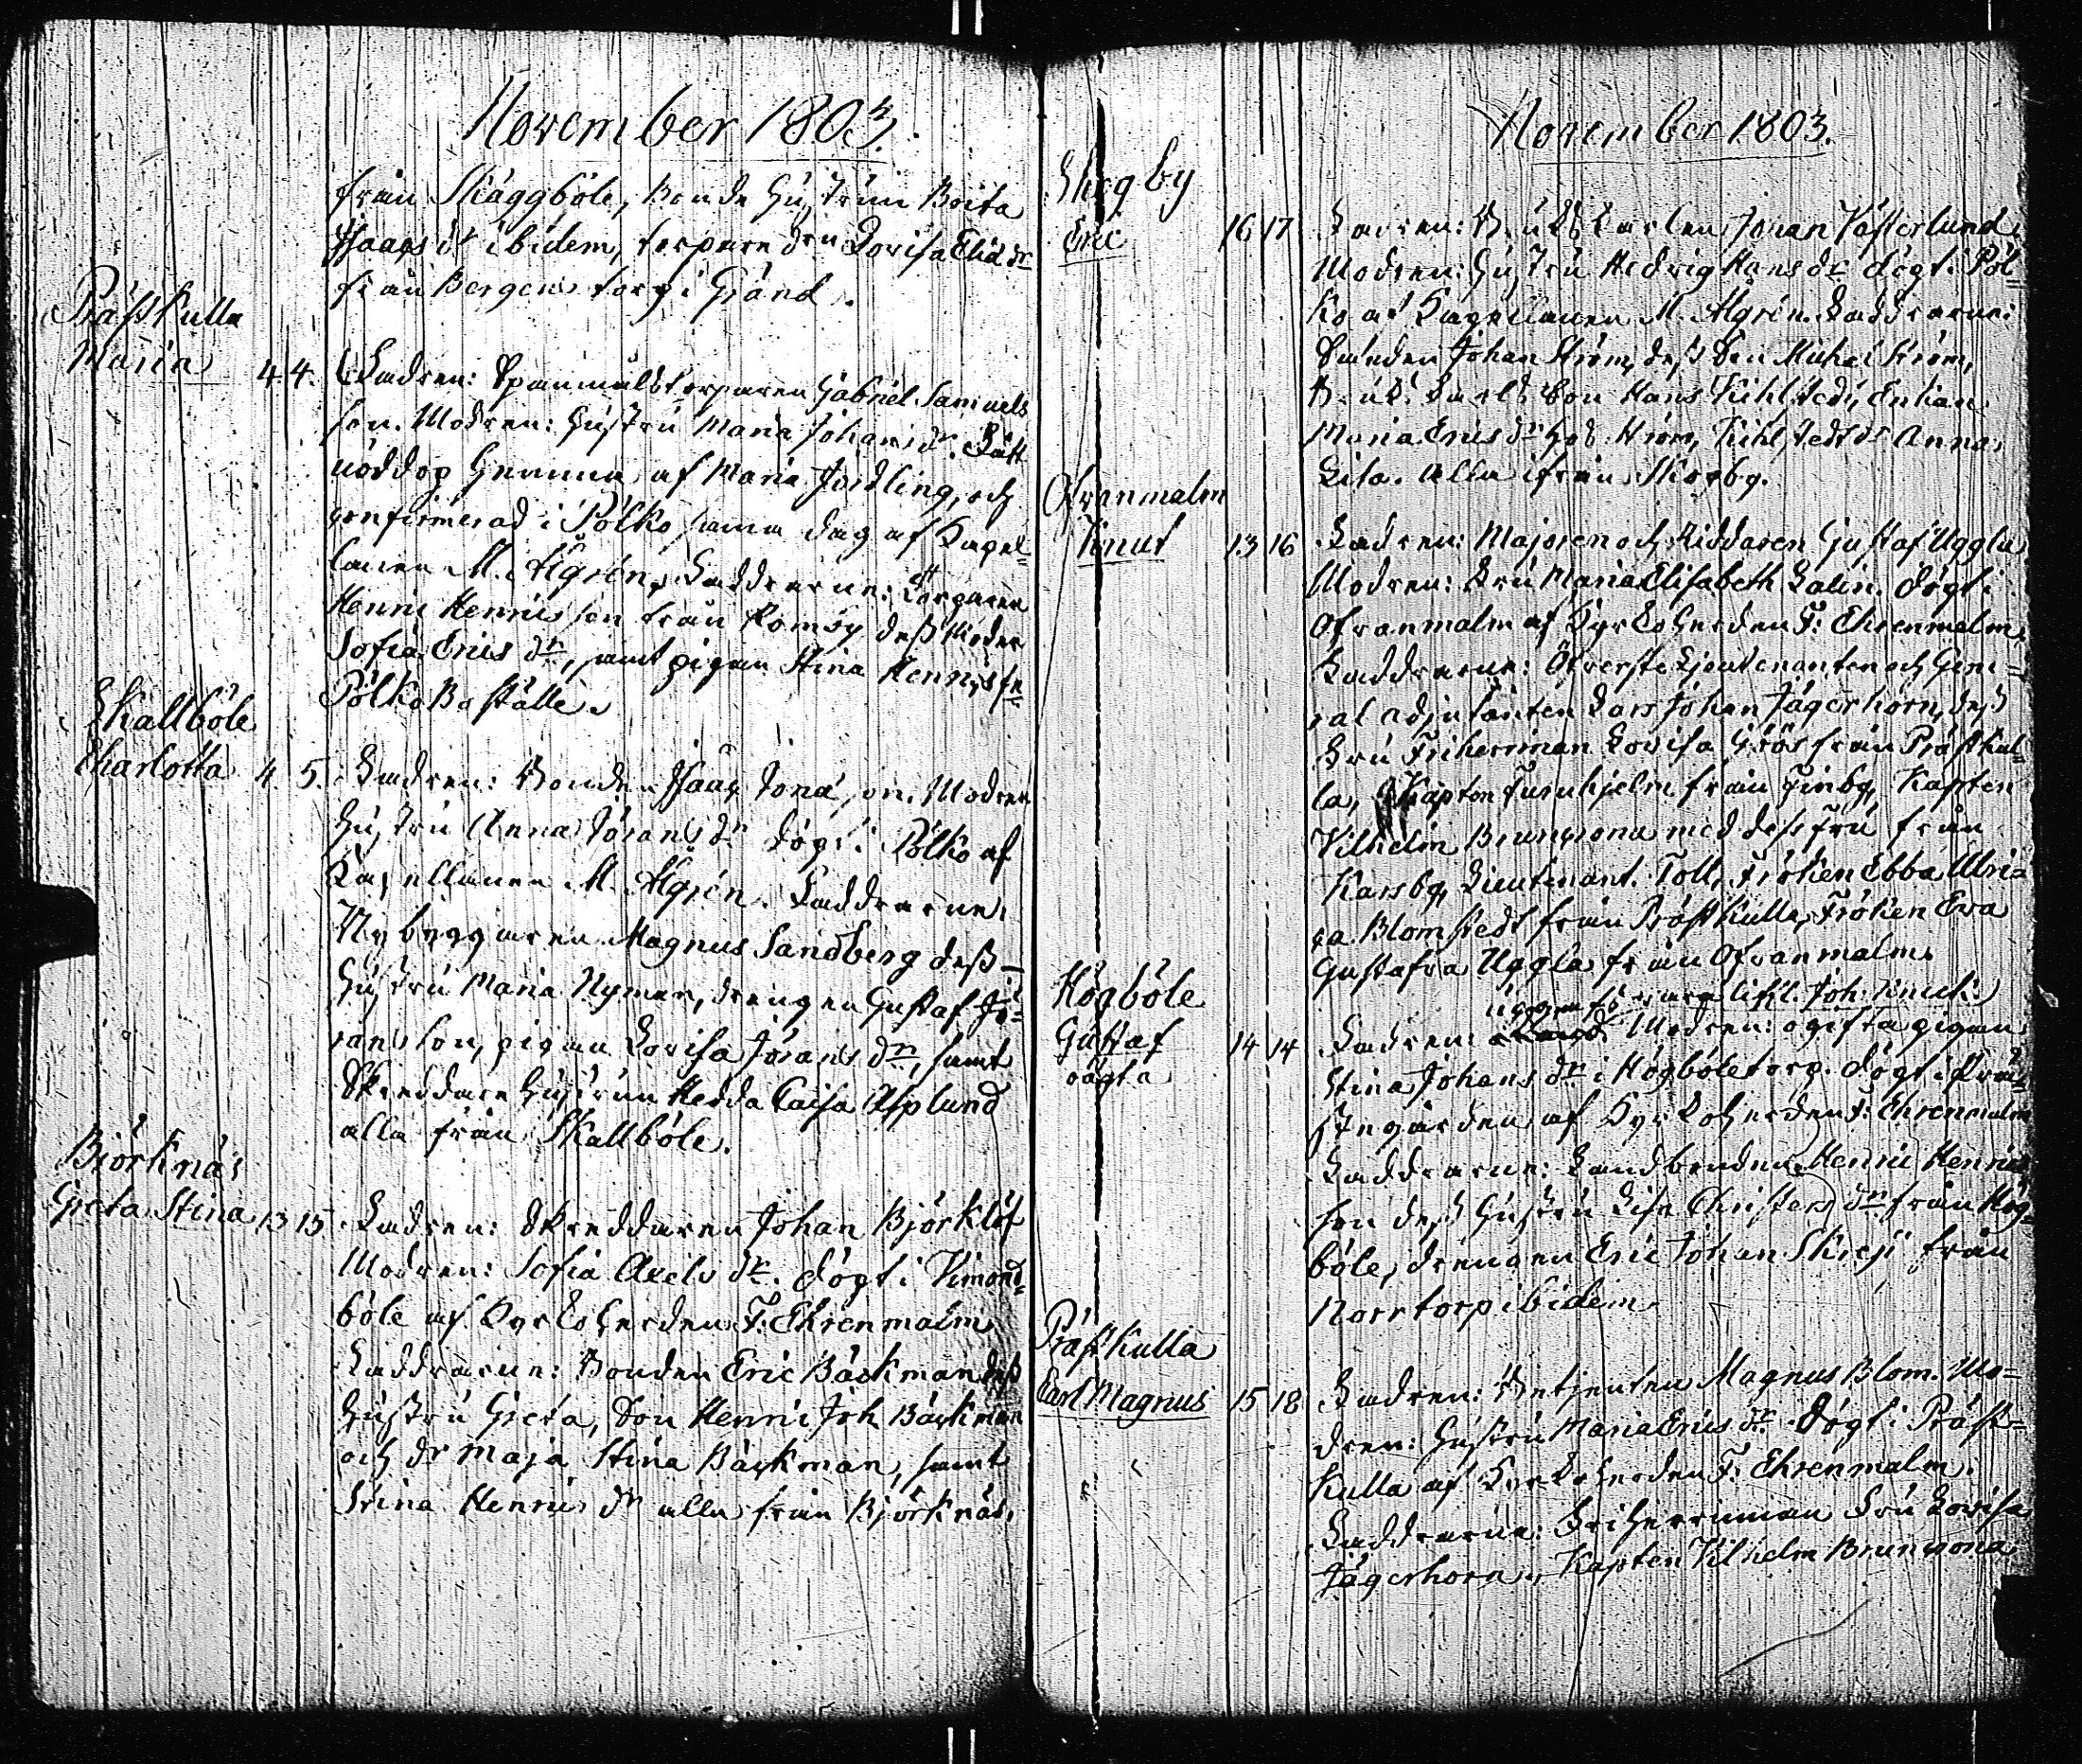 November 1803.
från Skäggböle, Bonde Hustrun Brita
Isaacs dr ibidem, torpare drn Lovisa Elid dr
från Bergens torp i Gränd.
Präst Kulla
Maria 4. 4. Fadren: Spanmålstorparen Gabriel Samuels
son. Modren: Hustru Maria Johans dr.
nöddop Hemma af Maria Jordling, och
confirmerad i Pölkö samma dag af Capel=
lanen M. Algrén. Faddrarne: Torparen
Henric Henricsson från Romsÿ dess Moder
Sofia Erics dr, samt pigan Stina Henrics dr
Pölkö Boställe.
Skallböle
Charlotta 4. 5. Fadren: Bonden Isaac Jöransson. Modren
Hustru Anna Jörans dr döpt i Pölkö af
Capellanen M. Algrén. Faddrarne:
Nybyggaren Magnus Sandberg dess
Hustru Maria Nyman, drengen Gustaf Jö=
ransson, pigan Lovisa Jörans dr, samt
Skreddare Hustrun Hedda Caisa Asplund
alla från Skallböle.
Björknäs
Greta Stina 13 15 Fadren: Skreddaren Johan Björklöf
Modren: Sofia Axels dr. döpt i Vimond=
böle af Kyrkoherden F: Ehrenmalm
Faddrarne: Bonden Eric Bäckman dess
Hustru Greta, Son Henric Joh Bäckman
och dr Maja Stina Bäckman, samt
Stina Henrics dr alla från Björknäs.
November 1803.
Skogby
Eric 16 17 Fadren: Bruks Karlen Jöran Västerlund
Modren: Hustru Hedvig Hans dr döpt i Pöl=
kö af Capellanen M. Algrén. Faddrarne:
Bonden Johan Ström, dess Son Michel Ström,
Bruks Karls Son Hans Kihlstedt, Enkan
Maria Erics dr hos Ström, Kihlstedts dr Anna
Lisa. alla ifrån Skogby.
Ofvanmalm
Knut 13 16 Fadren: Majoren och Riddaren Gustaf Uggla
Modren: Fru Maria Elisabeth Lalin. döpt i
Ofvanmalm af Kyrkoherden F: Ehrenmalm.
Faddrarne: Öfverste Lieutenanten och Gene=
ral adjutanten Lars Johan Jägerhorn, dess
Fru Friherrinnan Lovisa Göös från Prästkul=
la, Kapten Furuhjelm från Finby, Kapten
Vilhelm Bruncrona med dess fru från
Karsby, Lieutenant Toll, Fröken Ebba Ulri=
ca Blomstedt från Prästkulla, Fröken Eva
Gustafva Uggla från Ofvanmalm.
Högböle
Joh: Knuts
Gustaf 14 14 Fadren: Modren: ogifta pigan
oägta Stina Johans dr i Högböletorp. döpt i Prä=
stegården af Kyrkoherden F: Ehrenmalm
Faddrarne: Landbonden Henric Henrics
son dess Hustru Lisa Christers dr från Hög=
böle, drengen Eric Johan från
Norrtorp ibidem.
Präst Kulla
Carl Magnus 15 18 Fadren: Betjenten Magnus Blom. Mo=
dren: Hustru Maria Erics dr. Döpt i Präst=
Kulla af Kyrkoherden F: Ehrenmalm.
Faddrarne: Friherrinnan Fru Lovisa
Jägerhorn, Kapten Vilhelm Bruncrona